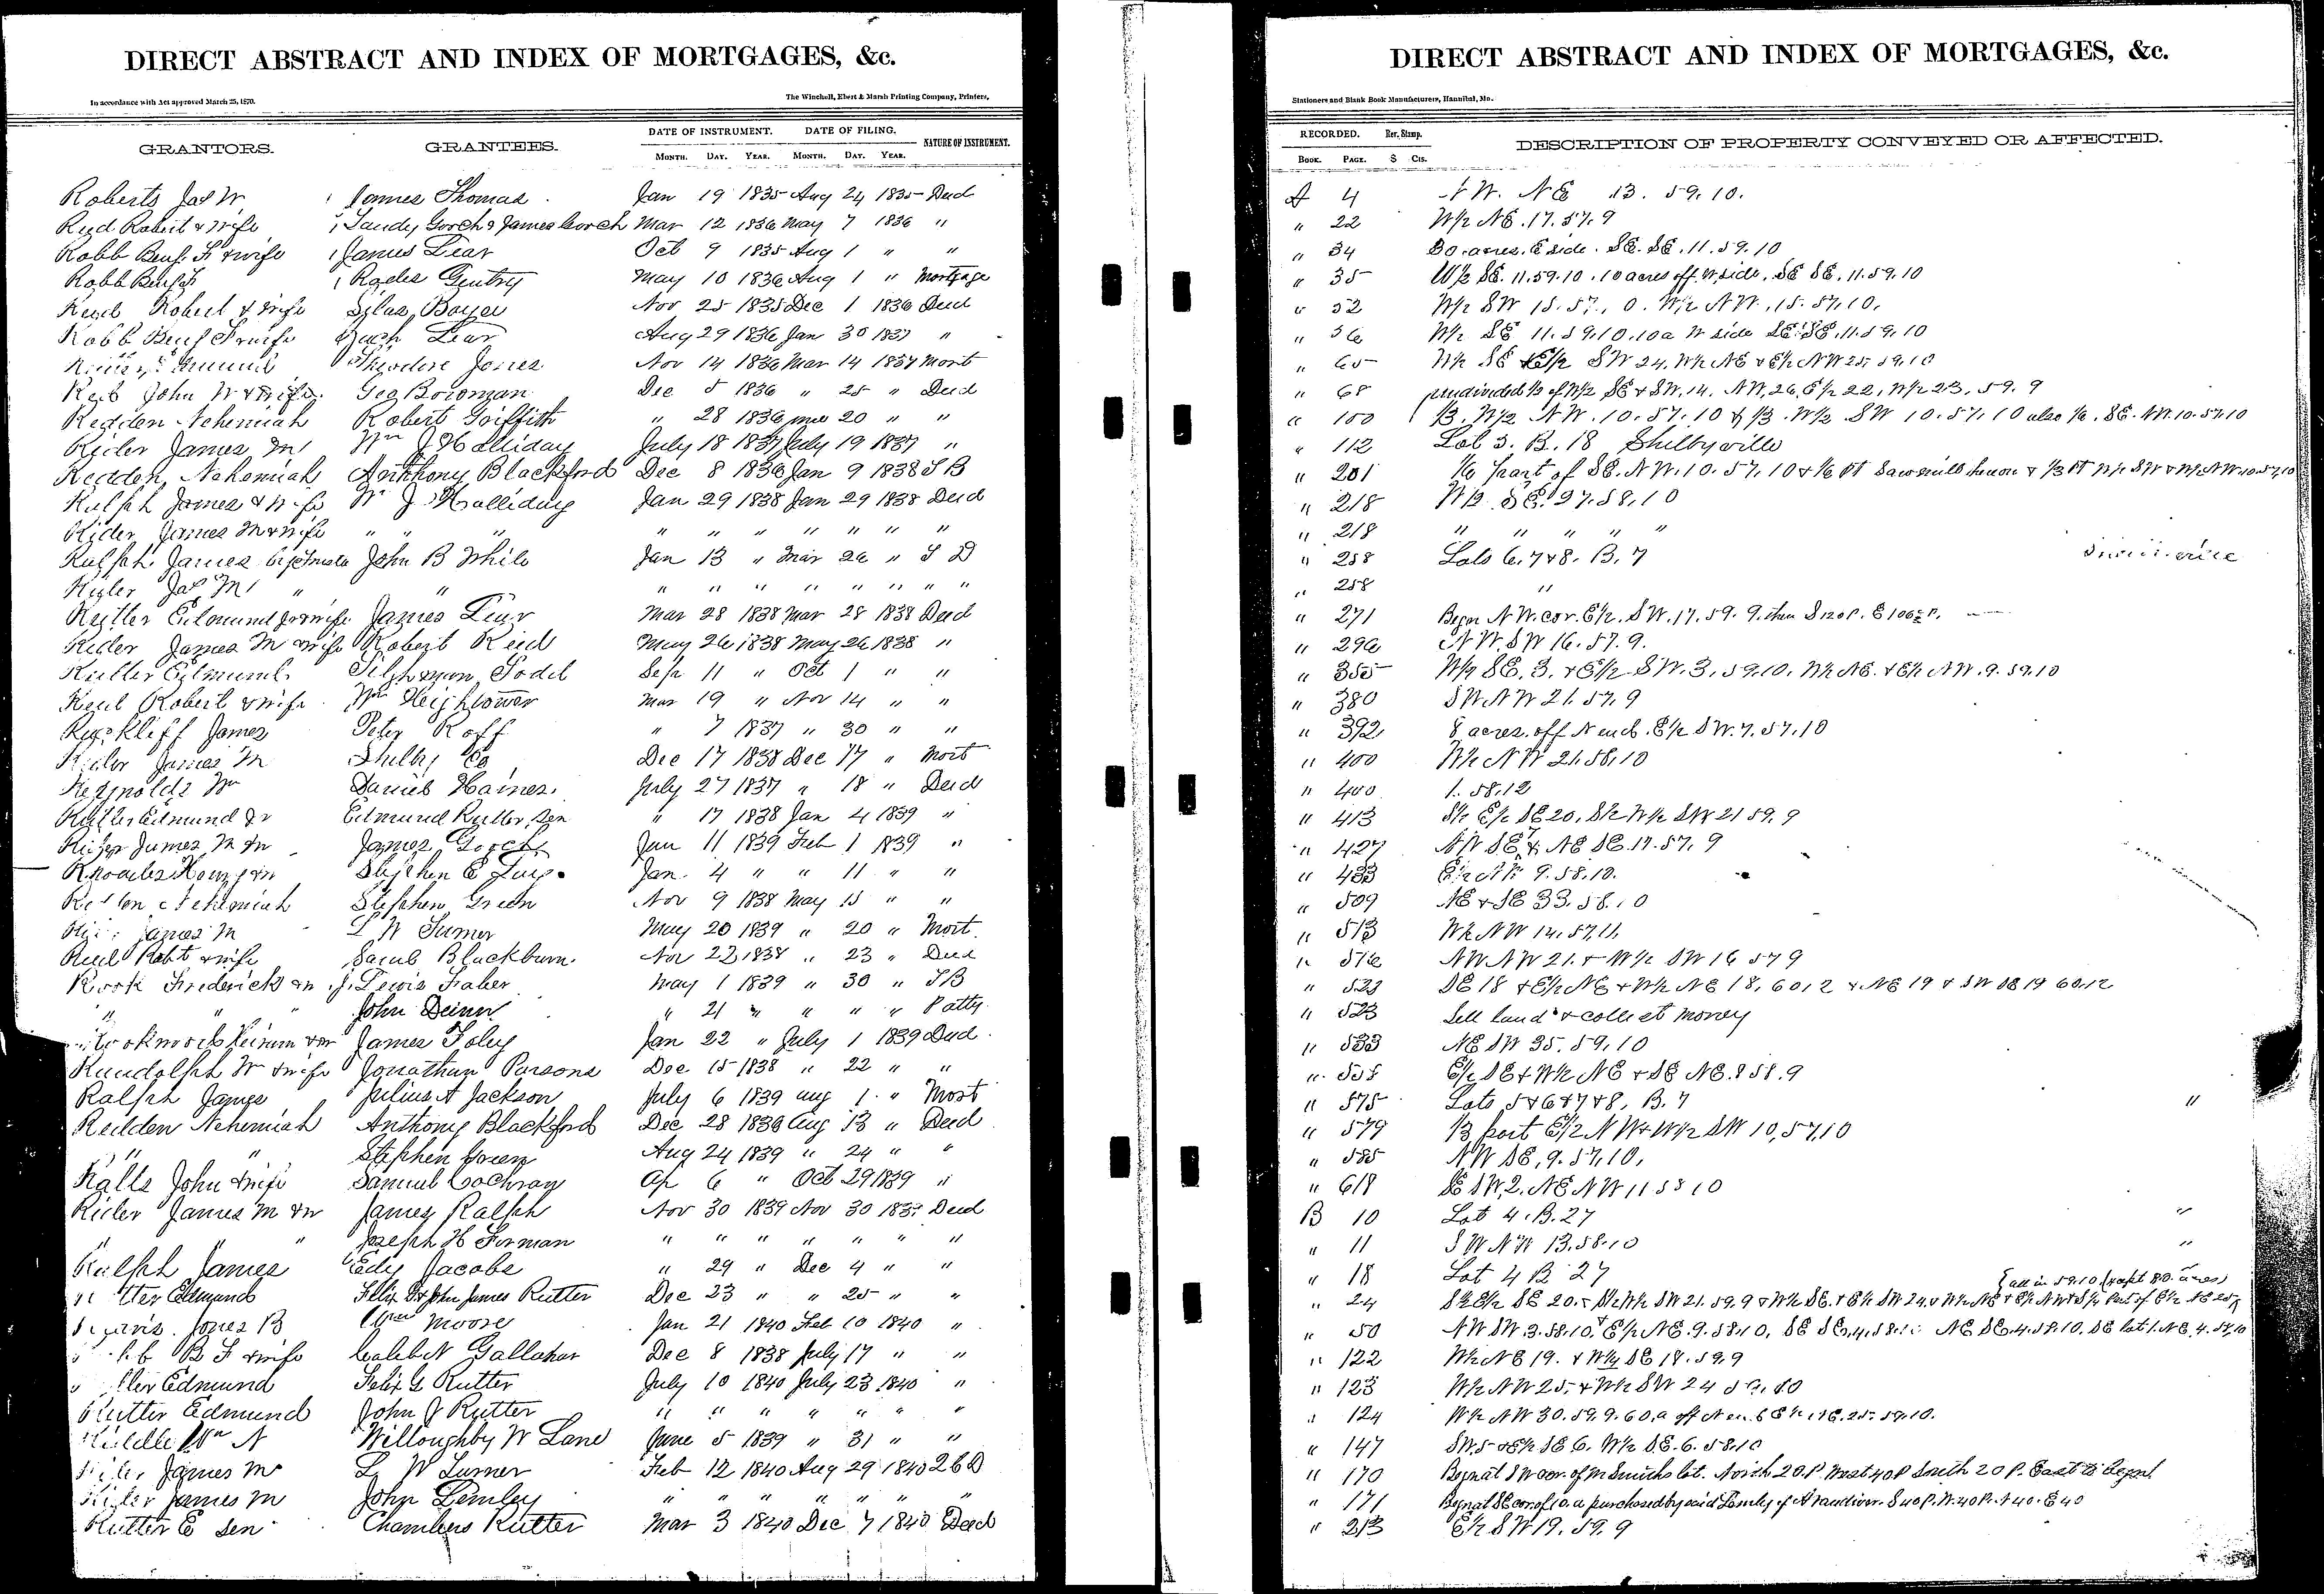 DIRECT ABSTRACT AND INDEX OF MORTGAGES, &c.
In accordance with Act approved March 25, 1870.
The Winchell, Ebert & Marsh Printing Company, Printers,
GRANTORS. GRANTEES. DATE OF INSTRUMENT. DATE OF FILING. NATURE OF INSTRUMENT.
MONTH. DAY. YEAR. MONTH. DAY. YEAR.
Roberts Jas W James Thomas Jan 19 1835 Aug 24 1835 Deed
Reed Robert & wife Sandy Gorch & James Gorch Mar 12 1836 May 7 1836 "
Robb Benj. F & wife James Lear Oct 9 1835 Aug 1 " "
Robb Benj F Rodes Gentry May 10 1836 Aug 1 " Mortgage
Reed Robert & wife Silas Boyer Nov 25 1835 Dec 1 1836 Deed
Robb Benj F & wife Zach Lear Aug 29 1836 Jan 30 1837 "
Theodore Jones Nov 14 1836 Mar 14 1837 Mort
John W & wife Geo Boidman Dec 5 1836 " 25 " Deed
Redden Nehemiah Robert Griffith " 28 1836 June 20 " "
Rider James M Wm J Halliday July 18 1837 July 19 1837 "
Redden Nehemiah Anthony Blackford Dec 8 1836 Jan 9 1838 T B
Ralph James & wife Wm J Halliday Jan 29 1838 Jan 29 1838 Deed
Rider James M & wife " " " " " " " " "
Ralph James John B White Jan 13 " Mar 26 " T D
Rider Jas M " " " " " " " " "
Rutter Edmund Jr & wife James Lear Mar 28 1838 Mar 28 1838 Deed
Rider James M & wife Robert Reid May 26 1838 May 26 1838 "
Rutter Edmund Tilghman Todd Sep 11 " Oct 1 " "
Reed Robert & wife Wm Heightower Mar 19 " Nov 14 " "
James Peter Roff " 7 1837 " 30 " "
Rider James M Shelby Co Dec 17 1838 Dec 17 " Mort
Reynolds Wm Daniel Haines July 27 1837 " 18 " Deed
Rutter Edmund Jr Edmund Rutter, Sen " 17 1838 Jan 4 1839 "
Rider James M & w James Gorch Jan 11 1839 Feb 1 1839 "
Rhoades Stephen E Jan 4 " " 11 " "
Redden Nehemiah Stephen Green Nov 9 1838 May 15 " "
James M L W Turner May 20 1839 " 20 " Mort.
Reed Robt & wife Jacob Blackburn Nov 22 1838 " 23 " Deed
Rook Frederick & w J. Lewis Faber May 1 1839 " 30 " T B
" " John Deiner " 21 " " " " P atty
James Foley Jan 22 " July 1 1839 Deed
Randolph Wm & wife Jonathan Parsons Dec 15 1838 " 22 " "
Ralph James Julius A Jackson July 6 1839 Aug 1 " Mort
Redden Nehemiah Anthony Blackford Dec 28 1836 Aug 13 " Deed
" " Stephen Green Aug 24 1839 " 24 " "
Ralls John & wife Samuel Cochran Ap 6 " Oct 29 1839 "
Rider James M & w James Ralph Nov 30 1839 Nov 30 1839 Deed
" " Joseph H Forman " " " " " " "
Ralph James Edy Jacobs " 29 " Dec 4 " "
Edmund Felix G & John James Rutter Dec 23 " " 25 " "
Jones B Moore Jan 21 1840 Feb 10 1840 "
B F & wife Caleb N Gallahar Dec 8 1838 July 17 " "
Edmund Felix G Rutter July 10 1840 July 23 1840 "
Rutter Edmund John J Rutter " " " " " " "
Riddle Wm N Willoughby W Lane June 5 1839 " 31 " "
Rider James M L W Turner Feb 12 1840 Aug 29 1840 2 6 D
Rider James M John Lemley " " " " " " "
Rutter E Sen Chambers Rutter Mar 3 1840 Dec 7 1840 Deed
DIRECT ABSTRACT AND INDEX OF MORTGAGES, &c.
Stationers and Blank Book Manufacturers, Hannibal, Mo.
RECORDED. Rev. Stamp. DESCRIPTION OF PROPERTY CONVEYED OR AFFECTED.
BOOK. PAGE. $ Cts.
A 4 N W. N E 13. 59. 10.
" 22 W½ NE. 17. 57. 9
" 34 30 acres. E side. SE. SE. 11. 59. 10
" 35 W½ SE. 11. 59. 10. 10 acres off W. side. SE SE. 11. 59. 10
" 52 W½ SW 15. 57. 10. W½ NW. 15. 57. 10.
" 56 W½ SE 11. 59. 10. 10 a W side SE. SE. 11. 59. 10
" 65 W½ SE & E½ SW 24. W½ NE & E½ NW 25. 59. 10
" 68 undivided ½ of W½ SE & SW. 14. NW. 26. E½ 22, W½ 23. 59. 9
" 100 ⅓. W½ NW. 10. 57. 10 & ⅓. W½ SW 10. 57. 10 also ⅙. SE. NW. 10. 57. 10
" 112 Lot 3. B. 18 Shelbyville
" 201 ⅙ part of SE. NW. 10. 57. 10 & ⅙ pt Sawmill & ⅓ pt W½ SW & W½ NW. 10. 57. 10
" 218 W½ SE. 27. 58. 10
" 218 " " " " "
" 258 Lots 6. 7 & 8. B. 7
" 258 "
" 271 Begn NW. cor. E½. SW. 17. 59. 9. then S 120 P. E 106⅔ P.
" 296 NW. SW 16. 57. 9.
" 355 W½ SE. 3. & E½ SW. 3. 59. 10. W½ NE. & E½ NW. 9. 59. 10
" 380 SW NW 21. 57. 9
" 392 8 acres. off N end. E½ SW. 7. 57. 10
" 400 W½ NW 21. 58. 10
" 400 1. 58. 12
" 413 S½ E½ SE 20. S½ W½ SW 21 59. 9
" 427 NW SE & NE SE. 17. 57. 9
" 433 E½ 9. 58. 10.
" 509 NE & SE 33. 58. 10
" 513 W½ NW 14. 57. 11.
" 516 NW NW 21. & W½ SW 16 57 9
" 523 SE 18 & E½ NE & W½ NE 18, 60. 12 & NE 19 & SW SE 19 60. 12
" 523 Sell land & collect money
" 533 NE SW 35. 59. 10
" 558 E½ SE & W½ NE & SE NE. 8 58. 9
" 575 Lots 5 & 6 & 7 & 8, B. 7 "
" 579 ⅓ part E½ NW & W½ SW 10, 57, 10
" 585 NW SE, 9. 57. 10.
" 618 SE SW, 2. NE NW 11 58 10
B 10 Lot 4. B. 27 "
" 11 SW NW 13. 58. 10 "
" 18 Lot 4 B 27
all in 59. 10 (except 80 acres)
" 24 S½ E½ SE 20. & S½ W½ SW 21. 59. 9 & W½ SE. & E½ SW 24. & W½ NE & E½ NW & S½ Part of E½ NE 25
" 50 NW SW. 3. 58. 10. & E½ NE. 9. 58. 10, SE SE, 4, 58. 10 NE SE. 4. 58. 10. SE lot 1. NE. 4. 58. 10
" 122 W½ NE 19. & W½ SE 18. 59. 9
" 123 W½ NW 25. & W½ SW 24 59. 10
" 124 W½ NW 30. 59. 9. 60. a off N end E½ NE. 25. 59. 10.
" 147 SW. 5 & E½ SE 6. W½ SE. 6. 58. 10
" 170 Begn at SW cor. of M Smiths lot. North 20. P West 40 P South 20 P. East to begn
" 171 Begn at SE cor. of 10. a purchased by said Lemley of A Vandiver. S 40 P. W. 40 P. N 40. E 40
" 213 E½ SW 19. 59. 9